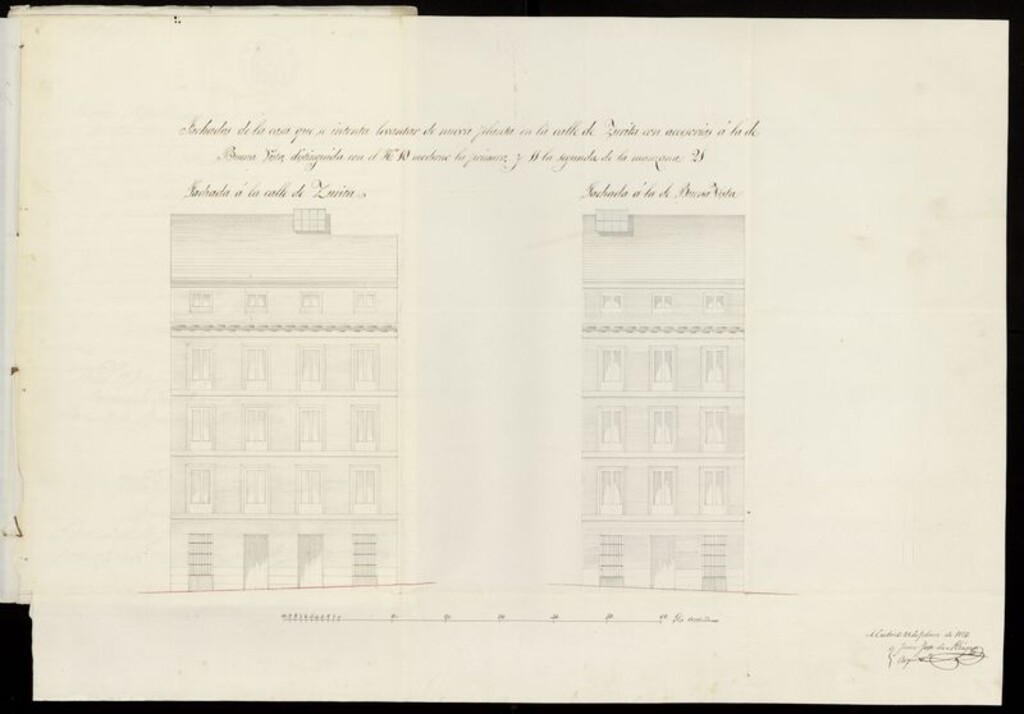 Fachadas de la casa que se intenta levantar de nueva planta en la calle de Zurita con accesorias á la de
Buena Vista, distinguida con el Nº 10 moderno la primera, y 11 la segunda de la manzana 21
Fachada á la calle de Zurita.
Fachada á la de Buena Vista.
Madrid de febrero de
Juan José